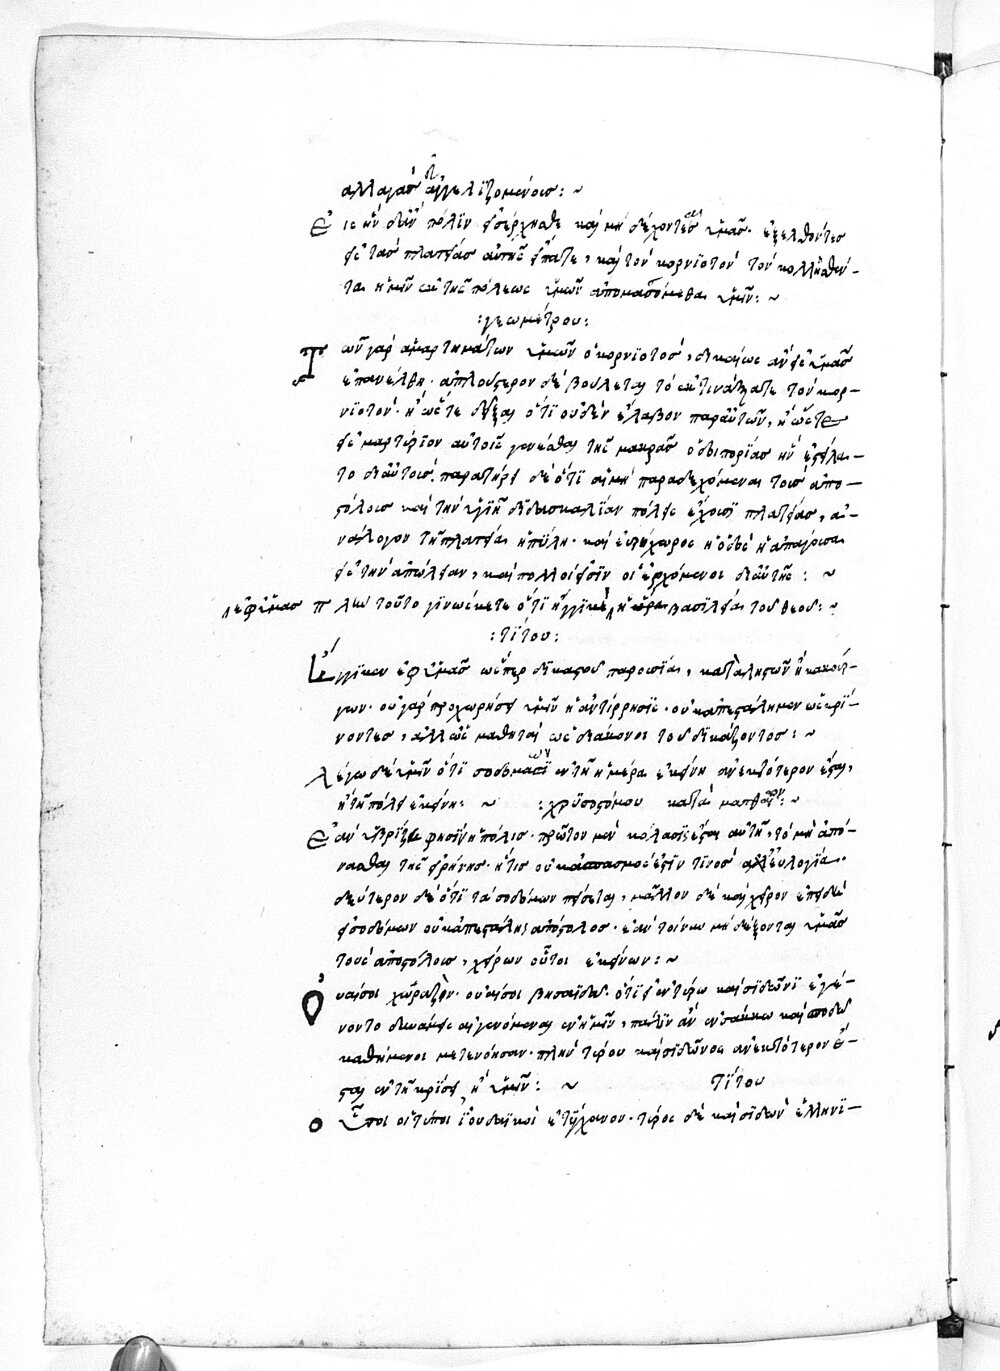 ἀλλαγὰς εὐαγγελιζομένοις: ~
Εἰς ἣν δ' ἂν πόλιν εἰσέρχησθε καὶ μὴ δέχονται ὑμᾶς· ἐξελθόντες
εἰς τὰς πλατείας αὐτῆς εἴπατε, καὶ τὸν κονιορτὸν τὸν κολληθέν-
τα ἡμῖν ἐκ τῆς πόλεως ὑμῶν ἀπομασσόμεθα ὑμῖν: ~
:γεωμέτρου:
Τῶν γὰρ ἁμαρτημάτων ὑμῶν ὁ κορνϊοτὸσ, δικαίως ἂν εἰς ὑμᾶς
ἐπανέλθη· ἁπλούστερον δὲ βούλεται τὸ ἐκτινάξατε τὸν κορ-
νϊοτὸν· ἢ ὥστε δεῖξαι ὅτι οὐδὲν ἔλαβον παρ' αὐτῶν, ἢ ὥστε
εἰς μαρτύριον αὐτοῖς γενέσθαι τῆς μακρᾶς ὁδοιπορίας ἣν ἐστείλαν-
το δι' αὐτοὺς. παρατήρει δὲ ὅτι αἱ μὴ παραδεχόμεναι τοὺς ἀπο-
στόλους καὶ τὴν ὑγιῆ διδασκαλίαν πόλεις ἔχουσι πλατείας, ἀ-
νάλογον τῇ πλατείᾳ ἡ πύλη· καὶ εὐρύχωρος ἡ ὁδὸς ἡ ἀπάγουσα
εἰς τὴν ἀπώλειαν, καὶ πολλοὶ εἰσὶν οἱ ἐρχόμενοι δι' αὐτῆς: ~
πλὴν τοῦτο γινώσκετε ὅτι ἤγγικεν ἐφ' ὑμᾶς ἡ βασιλεία τοῦ θεοῦ: ~
:τίτου:
Ἤγγικεν ἐφ' ὑμᾶς ὥσπερ δικαστοῦ παρουσία, καταλῃστῶν ἢ κακούρ-
γων· οὐ γὰρ προχωρήσει ὑμῖν ἡ ἀντίρρησις· οὐκ ἀπεστάλημεν ὡς κρί-
νοντες, ἀλλ' ὡς μαθηταὶ ὡς διάκονοι τοῦ δικάζοντος: ~
λέγω δὲ ὑμῖν ὅτι σοδόμων ἐν τῇ ἡμέρᾳ ἐκείνῃ ἀνεκτότερον ἔσται,
ἢ τῇ πόλει ἐκείνῃ: ~ :χρυσοστόμου κατὰ ματθαῖον: ~
Ἐὰν ὑβρίζῃ φησὶν ἡ πόλις· πρῶτον μὲν κόλασις ἔσται αὐτῇ, τὸ μὴ ἀπό-
νασθαι τῆς εἰρήνης· ἥτις οὐκ ἀσπασμός ἐστιν τινὸς ἀλλ' εὐλογία·
δεύτερον δὲ ὅτι τὰ σοδόμων πείσεται, μᾶλλον δὲ καὶ χεῖρον ἐπειδὴ
εἰς σοδόμων οὐκ ἀπεστάλη ἀπόστολος· ἐὰν τοίνυν μὴ δέξονται ὑμᾶς
τοὺς ἀποστόλους, χείρων οὗτοι ἐκείνων: ~
Οὐαί σοι χωραζὶν· οὐαί σοι βησαϊδὰ· ὅτι εἰ ἐν τύρῳ καὶ σιδῶνι ἐγέ-
νοντο δυνάμεις αἱ γενόμεναι ἐν ἡμῖν, πάλιν ἂν ἐν σάκκῳ καὶ σποδῷ
καθήμενοι μετενόησαν· πλὴν τύρου καὶ σιδῶνος ἀνεκτότερον ἔ-
σται ἐν τῇ κρίσει, ἢ ὑμῖν: ~ Τίτου
Ὅτι οἱ τόποι ἰουδαϊκοὶ ἐτύγχανον· τύρος δὲ καὶ σιδὼν ἑλληνι-